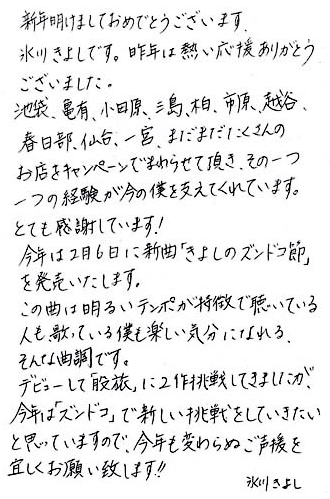 新年明けましておめでとうございます.
氷川きよしです。昨年は熱い応援ありがとう
ございました。
池袋、亀有、小田原、三島、柏、市原、越谷、
春日部、仙台、一宮、まだまだたくさんの
お店をキャンペーンでまわらせて頂き、その一つ
一つの経験が今の僕を支えてくれています。
とても感謝しています!
今年は2月6日に新曲「きよしのズンドコ節」
を発売いたします。
この曲は明るいテンポが特徴で聴いている
人も、歌っている僕も楽しい気分になれる、
そんな曲調です。
デビューして「股旅」に2作挑戦してきましたが、
今年は「ズンドコ」で新しい挑戦をしていきたい
と思っていますので、今年も変わらぬご声援を
宜しくお願い致します!!
氷川きよし